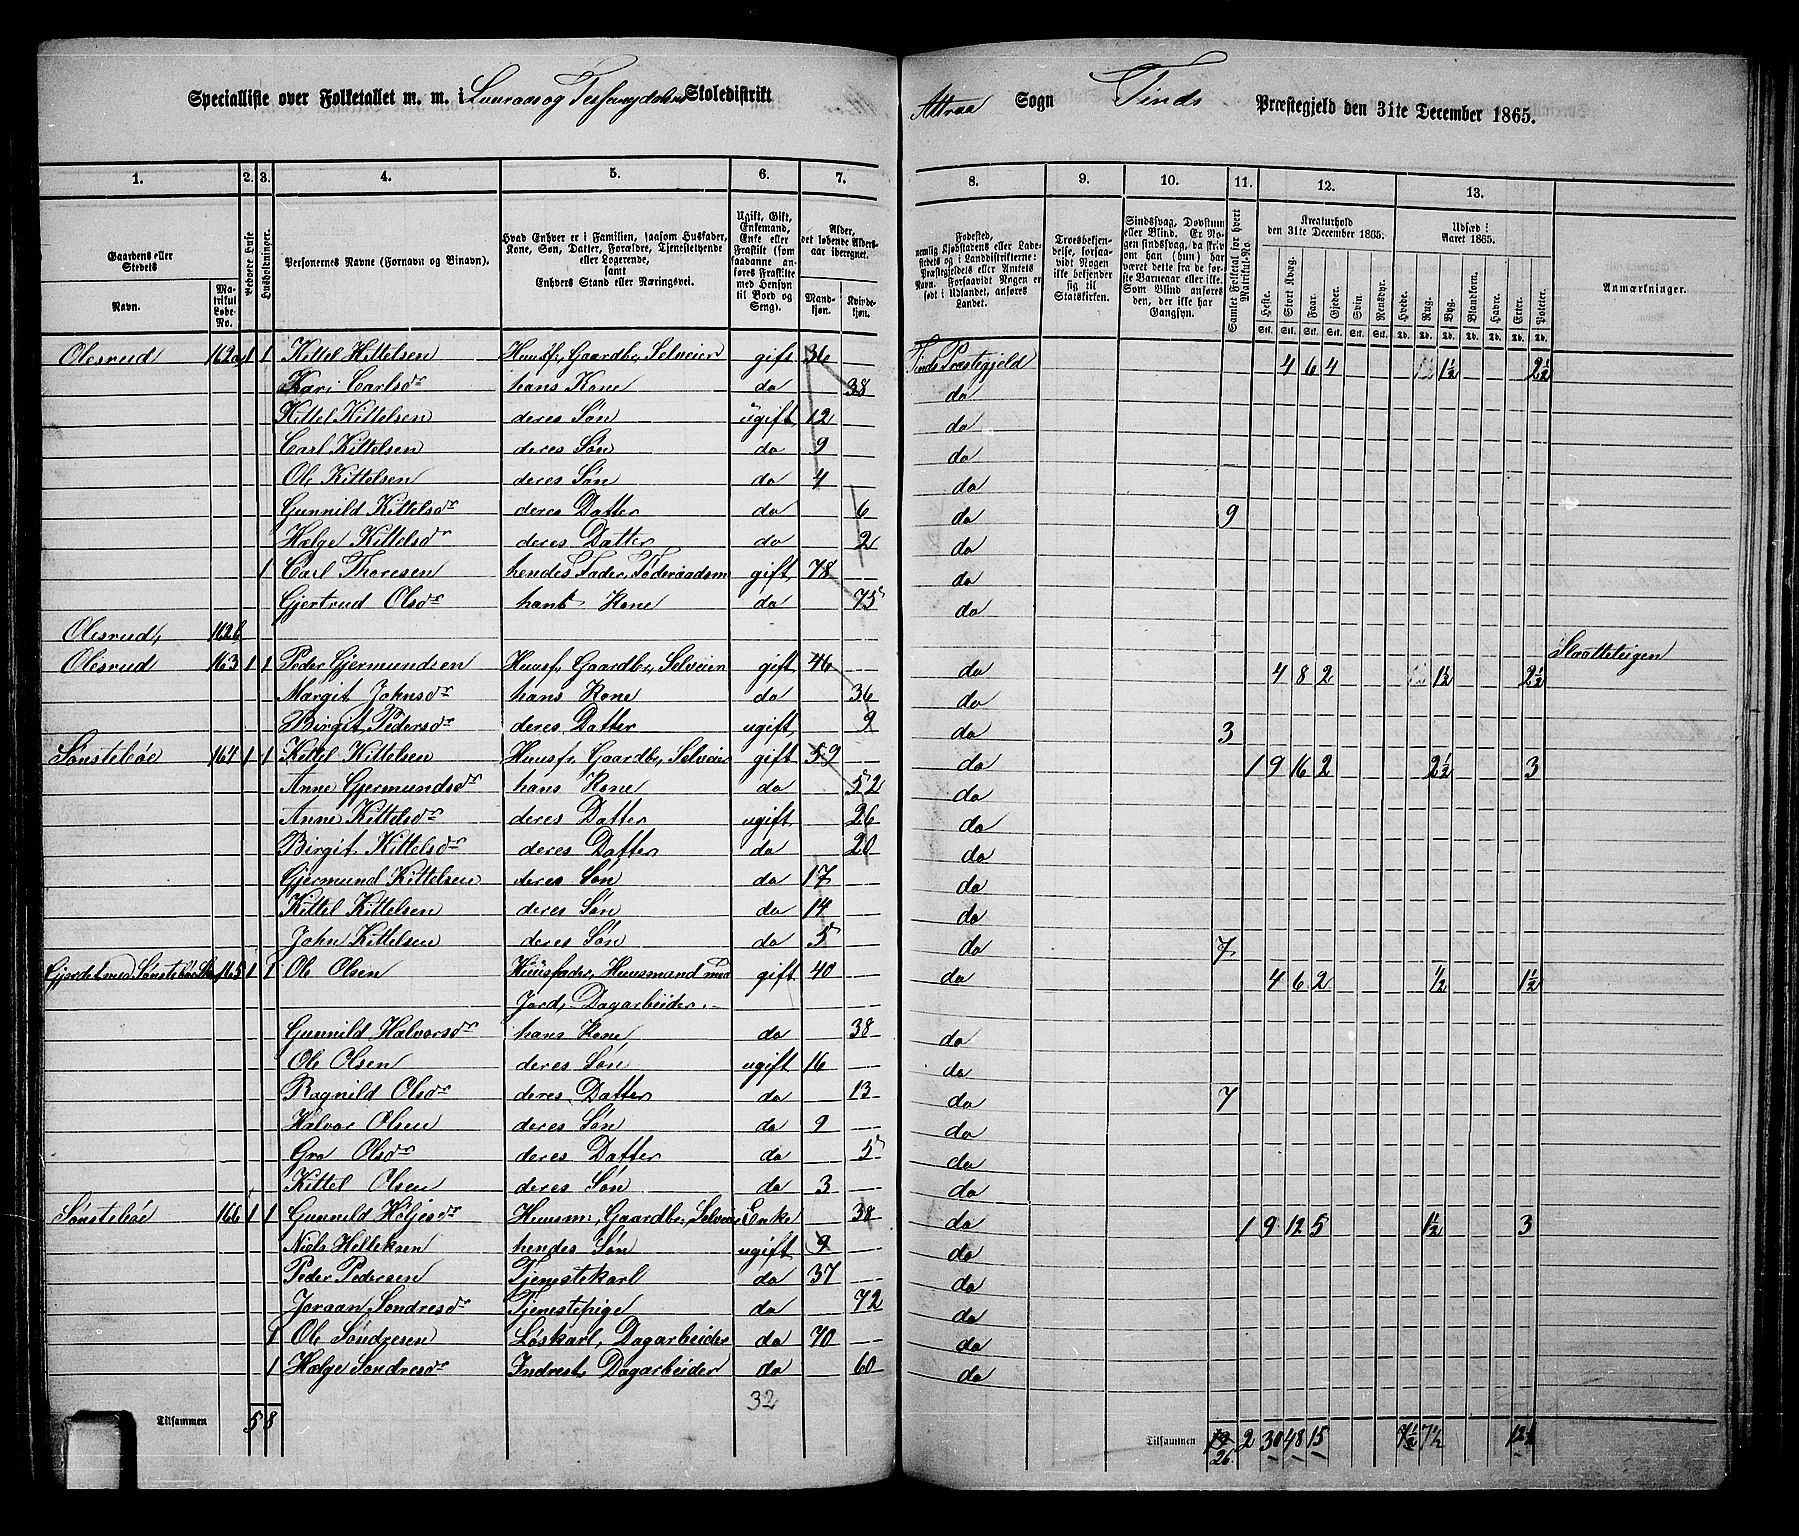 Specialliste over Folketallet m. m. i Luuraas og Tessungdalens Skoledistrikt
Attraa Sogn Tinds Præstegjeld den 31te December 1865.
1. 2. 3. 4. 5. 6. 7. 8. 9. 10. 11. 12. 13.
Gaardens eller Stedets
Navn.
Matrikul Løbe-No.
Beboede Huse
Husholdninger.
Personernes Navne (Fornavn og Binavn).
Hvad Enhver er i Familien, saasom Husfader, Kone, Søn, Datter, Forældre, Tjenestetyende eller Logerende,
samt
Enhvers Stand eller Næringsvei.
Ugift, Gift, Enkemand, Enke eller Fraskilt (som saadanne anføres Fraskilte med Hensyn til Bord og Seng).
Alder, det løbende Aldersaar iberegnet.
Mandkjøn.
Kvindekjøn.
Fødested,
nemlig Kjøbstadens eller Ladestedets og i Landdistrikterne: Præstegjeldets eller Amtets Navn. Forsaavidt Nogen er født i Udlandet, anføres Landet.
Troesbekjendelse, forsaavidt Nogen ikke bekjender sig til Statskirken.
Sindssvag, Døvstum eller Blind. Er Nogen sindssvag, da skriv om han (hun) har været dette fra de første Barneaar eller ikke. Som Blind anføres den, der ikke har Gangsyn.
Samlet Folketal for hvert Matrikul-No.
Kreaturhold
den 31te December 1865.
Heste. Stort Kvæg. Faar. Gjeder. Svin. Rensdyr.
Udsæd i
Aaret 1865.
Hvede. Rug. Byg. Blandkorn. Havre. Erter. Poteter.
Anmærkninger.
Olesrud 162a 1 1 Kittel Kittelsen Huusf., Gaardbr, Selveier gift 36 Tinds Præstegjeld 4 6 4 1½ 2½
Kari Carlsdr hans Kone do 38 do
Kittel Kittelsen deres Søn ugift 12 do
Carl Kittelsen deres Søn do 9 do
Ole Kittelsen deres Søn do 4 do
Gunnild Kittelsdr deres Datter do 6 do 9
Hælge Kittelsdr deres Datter do 2 do
1 Carl Thoresen hendes Fader, Føderaadsm gift 78 do
Gjertrud Olsdr hans Kone do 75 do
Olesrud, 162b
Olesrud 163 1 1 Peder Gjermundsen Huusf, Gaardbr, Selveier gift 46 do 4 8 2 1½ 2½ Slaatteteigen
Margit Johnsdr hans Kone do 36 do
Birgit Pedersdr deres Datter ugift 9 do 3
Sønstebøe 164 1 1 Kittel Kittelsen Huusf, Gaardbr, Selveier gift 59 do 1 9 16 2 2½ 3
Anne Gjermundsdr hans Kone do 52 do
Anne Kittelsdr deres Datter ugift 26 do
Birgit Kittelsdr deres Datter do 20 do
Gjermund Kittelsen deres Søn do 17 do
Kittel Kittelsen deres Søn do 14 do
John Kittelsen deres Søn do 5 do 7
Gjerdet med Sønstebøe 165 1 1 Ole Olsen Huusfader, Huusmand med gift 40 do 4 6 2 ½ 1½
Jord, Dagarbeider.
Gunnild Halvorsdr hans Kone do 38 do
Ole Olsen deres Søn ugift 16 do
Ragnild Olsdr deres Datter do 13 do 7
Halvor Olsen deres Søn do 9 do
Gro Olsdr deres Datter do 5 do
Kittel Olsen deres Søn do 3 do
Sønstebøe 166 1 1 Gunnild Høljesdr Huusm, Gaardbr, Selveier Enke 38 do 1 9 12 5 1½ 3
Niels Helleksen hendes Søn ugift 9 do
Peder Pedersen Tjenestekarl do 37 do
Joraan Sondresdr Tjenestepige do 72 do
1 Ole Sondresen Løskarl, Dagarbeider do 70 do
1 Hælge Sondresdr Inderst Dagarbeider do 60 do
32
Tilsammen 5 8
Tilsammen 26 2 30 48 15 7½ 7½ 12½